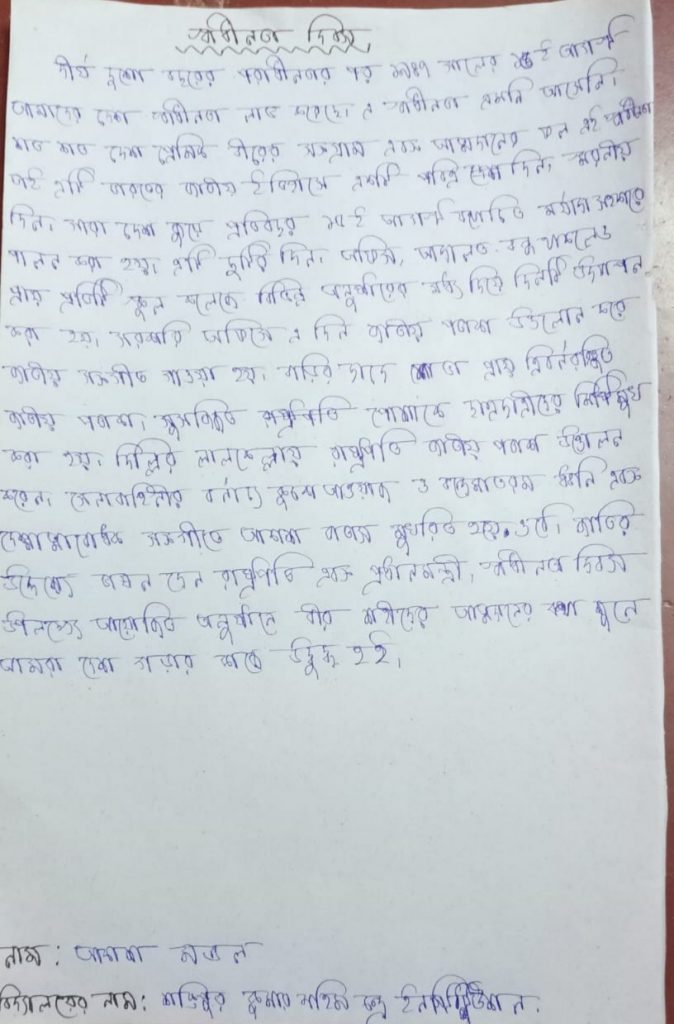 স্বাধীনতা দিবস
দীর্ঘ দুশো বছরের পরাধীনতার পর ১৯৪৭ সালের ১৫ই আগস্ট
আমাদের দেশ স্বাধীনতা লাভ করেছে। এ স্বাধীনতা এমনি আসেনি।
শত শত দেশ প্রেমিক বীরের সংগ্রাম এবং আত্মদানের ফল এই স্বাধীনতা
তাই এটি ভারতের জাতীয় ইতিহাসে একটি পবিত্র দিন, স্মরনীয়
দিন। সারা দেশ জুড়ে প্রতিবছর ১৫ই আগস্ট যথোচিত মর্যাদা সহকারে
পালন করা হয়। এটি ছুটির দিন। অফিস, আদালত বন্ধ থাকলেও
প্রায় প্রতিটি স্কুল কলেজে বিভিন্ন অনুষ্ঠানের মধ্য দিয়ে দিনটি উদযাপন
করা হয়। সরকারি অফিসে এ দিন জাতীয় পতাকা উত্তোলন করে
জাতীয় সঙ্গীত গাওয়া হয়। বাড়ির ছাদে শোভা পায় ত্রিবর্ণরঞ্জিত
জাতীয় পতাকা। সুসজ্জিত পোশাকে ছাত্রছাত্রীদের
করা হয়। দিল্লির লালকেল্লায় রাষ্ট্রপতি জাতীয় পতাকা উত্তোলন
করেন। সেনাবাহিনীর বর্ণাঢ্য কুচকাওয়াজ ও বন্দেমাতরম ধ্বনি এবং
দেশাত্মবোধক সঙ্গীতে আকাশ বাতাস মুখরিত হয়ে ওঠে। জাতির
উদ্দেশ্যে ভাষন দেন রাষ্ট্রপতি এবং প্রধানমন্ত্রী। স্বাধীনতা দিবস
উপলক্ষ্যে আয়োজিত অনুষ্ঠানে বীর শহীদের আত্মদানের কথা শুনে
আমরা দেশ গড়ার কাজে উদ্বুদ্ধ হই।
নাম: আকাশ মন্ডল
বিদ্যালয়ের নাম: শক্তিপুর কুমার মহিম চন্দ্র ইনস্টিটিউশন।